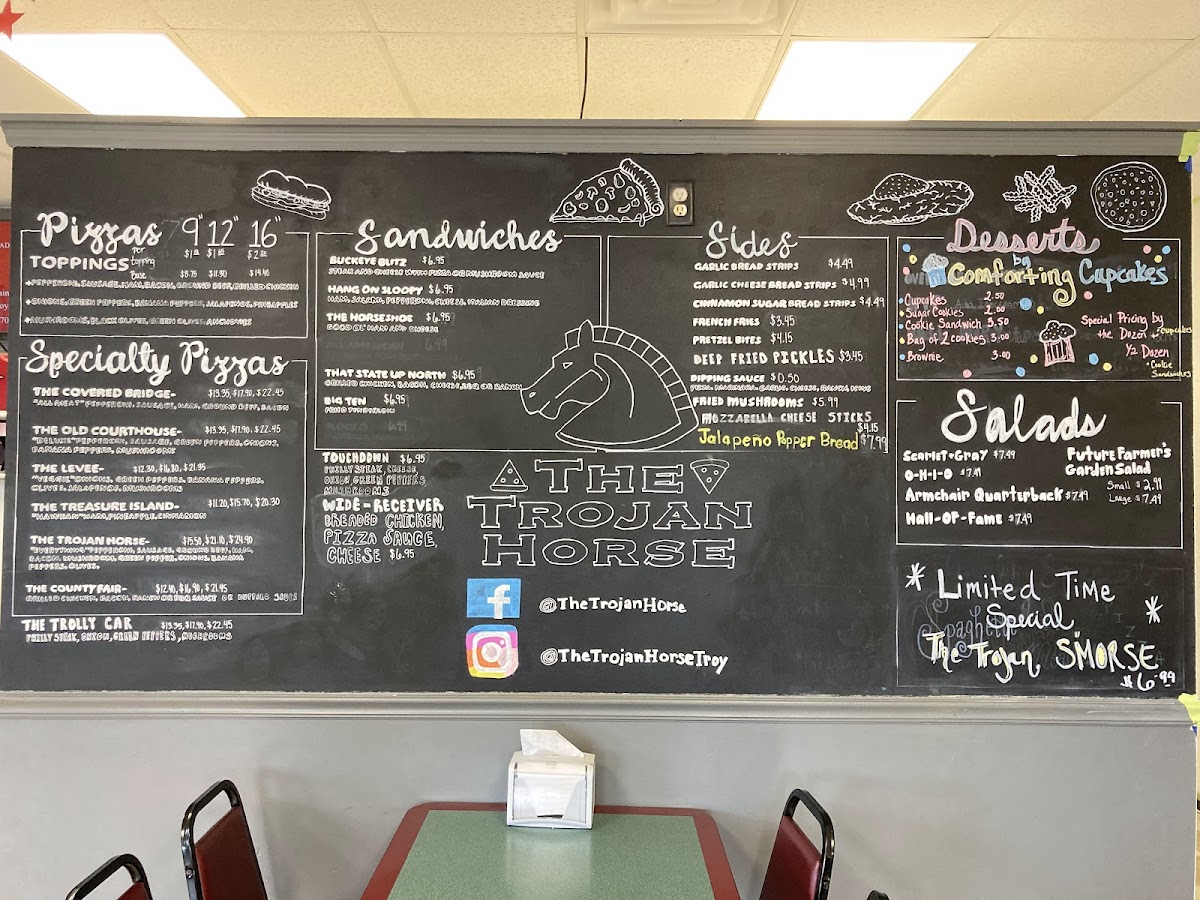 Pizzas 9" 12" 16"
TOPPINGS per topping
Base $8.75 $11.90 $14.40
+PEPPERONI, SAUSAGE, HAM, BACON, GROUND BEEF, GRILLED CHICKEN
+ONIONS, GREEN PEPPERS, BANANA PEPPERS, JALAPENOS, PINEAPPLES
+MUSHROOMS, BLACK OLIVES, GREEN OLIVES, ANCHOVIES
Specialty Pizzas
THE COVERED BRIDGE- $13.35, $17.90, $22.45
"ALL MEAT" PEPPERONI, SAUSAGE, HAM, GROUND BEEF, BACON
THE OLD COURTHOUSE- $13.35, $17.90, $22.45
"DELUXE" PEPPERONI, SAUSAGE, GREEN PEPPERS, ONIONS,
BANANA PEPPERS, MUSHROOMS
THE LEVEE- $12.30, $16.30, $21.95
"VEGGIE" ONIONS, GREEN PEPPERS, BANANA PEPPERS,
OLIVES, JALAPENOS, MUSHROOMS
THE TREASURE ISLAND- $11.20, $15.70, $20.30
"HAWAIIAN" HAM, PINEAPPLE, CINNAMON
THE TROJAN HORSE- $15.50, $21.10, $24.90
"EVERYTHING" PEPPERONI, SAUSAGE, GROUND BEEF, HAM,
BACON, MUSHROOM, GREEN PEPPER, ONIONS, BANANA
PEPPERS, OLIVES.
THE COUNTY FAIR- $12.40, $16.90, $21.45
GRILLED CHICKEN, BACON, RANCH OR BBQ SAUCE OR BUFFALO SAUCE
THE TROLLY CAR $13.35, $17.90, $22.45
PHILLY STEAK, ONION, GREEN PEPPERS, MUSHROOMS
Sandwiches
BUCKEYE BUTZ $6.95
STEAK AND CHEESE WITH PIZZA OR MUSHROOM SAUCE
HANG ON SLOOPY $6.95
HAM, SALAMI, PEPPERONI, CHEESE, ITALIAN DRESSING
THE HORSESHOE $6.95
GOOD OL' HAM AND CHEESE
6.99
THAT STATE UP NORTH $6.95
GRILLED CHICKEN, BACON, CHEESE, BBQ OR RANCH
BIG TEN $6.95
FRIED TENDERLOIN
6.99
TOUCHDOWN $6.95
PHILLY STEAK, CHEESE,
ONION, GREEN PEPPERS
MUSHROOMS
WIDE-RECEIVER
BREADED CHICKEN,
PIZZA SAUCE,
CHEESE $6.95
THE
TROJAN
HORSE
@TheTrojanHorse
@TheTrojanHorseTroy
Sides
GARLIC BREAD STRIPS $4.49
GARLIC CHEESE BREAD STRIPS $4.99
CINNAMON SUGAR BREAD STRIPS $4.49
FRENCH FRIES $3.45
PRETZEL BITES $4.15
DEEP FRIED PICKLES $3.45
DIPPING SAUCE $0.50
PIZZA, MARINARA, GARLIC, CHEESE, RANCH
FRIED MUSHROOMS $5.99
MOZZARELLA CHEESE STICKS
$4.15
Jalapeño Popper Bread $7.99
Desserts
by
Comforting Cupcakes
Cupcakes 2.50
Sugar Cookies 2.00
Cookie Sandwich 3.50
Bag of 2 cookies 3.00
Brownie 3.00
Special Pricing by
the Dozen + Cupcakes
1/2 Dozen
Cookie
Sandwiches
Salads
Scarlet+Gray $7.49
O-H-I-O $7.49
Armchair Quarterback $7.49
Hall-Of-Fame $7.49
Future Farmer's
Garden Salad
Small $2.99
Large $7.49
Limited Time
Special
Spaghetti
The Trojan S'MORSE
$6.99